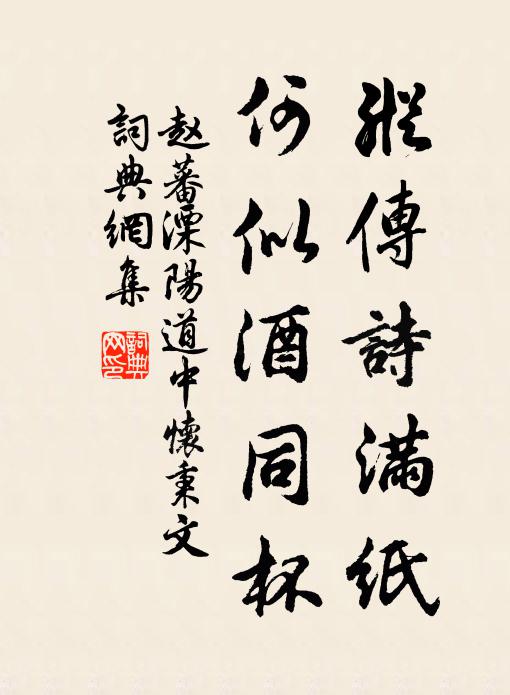 縱傳詩滿紙
何似酒同杯
赵蕃溧陽道中懷秉文
詞典網集
詞典網印